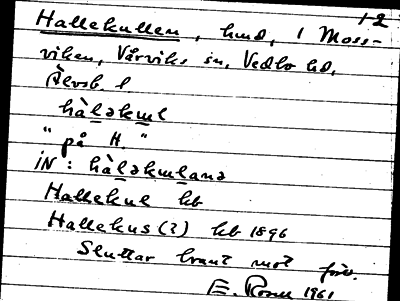 12
Hallekullen, hmd, i Moss-
viken, Vårviks sn, Vedbo hd,
Älvsb. l
hàləkɯl
" på H. "
iN: hàləkɯlanə
Hallekul kb
Hallekus (?) kb 1896
Sluttar brant mot
E. Rosen 1961